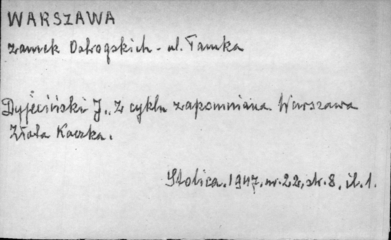 WARSZAWA
zamek Ostrogskich - ul. Tamka
Dyjeciński J., Z cyklu zapomniana Warszawa
Złota Kaczka.
Stolica. 1947. nr. 22, str. 8, il. 1.